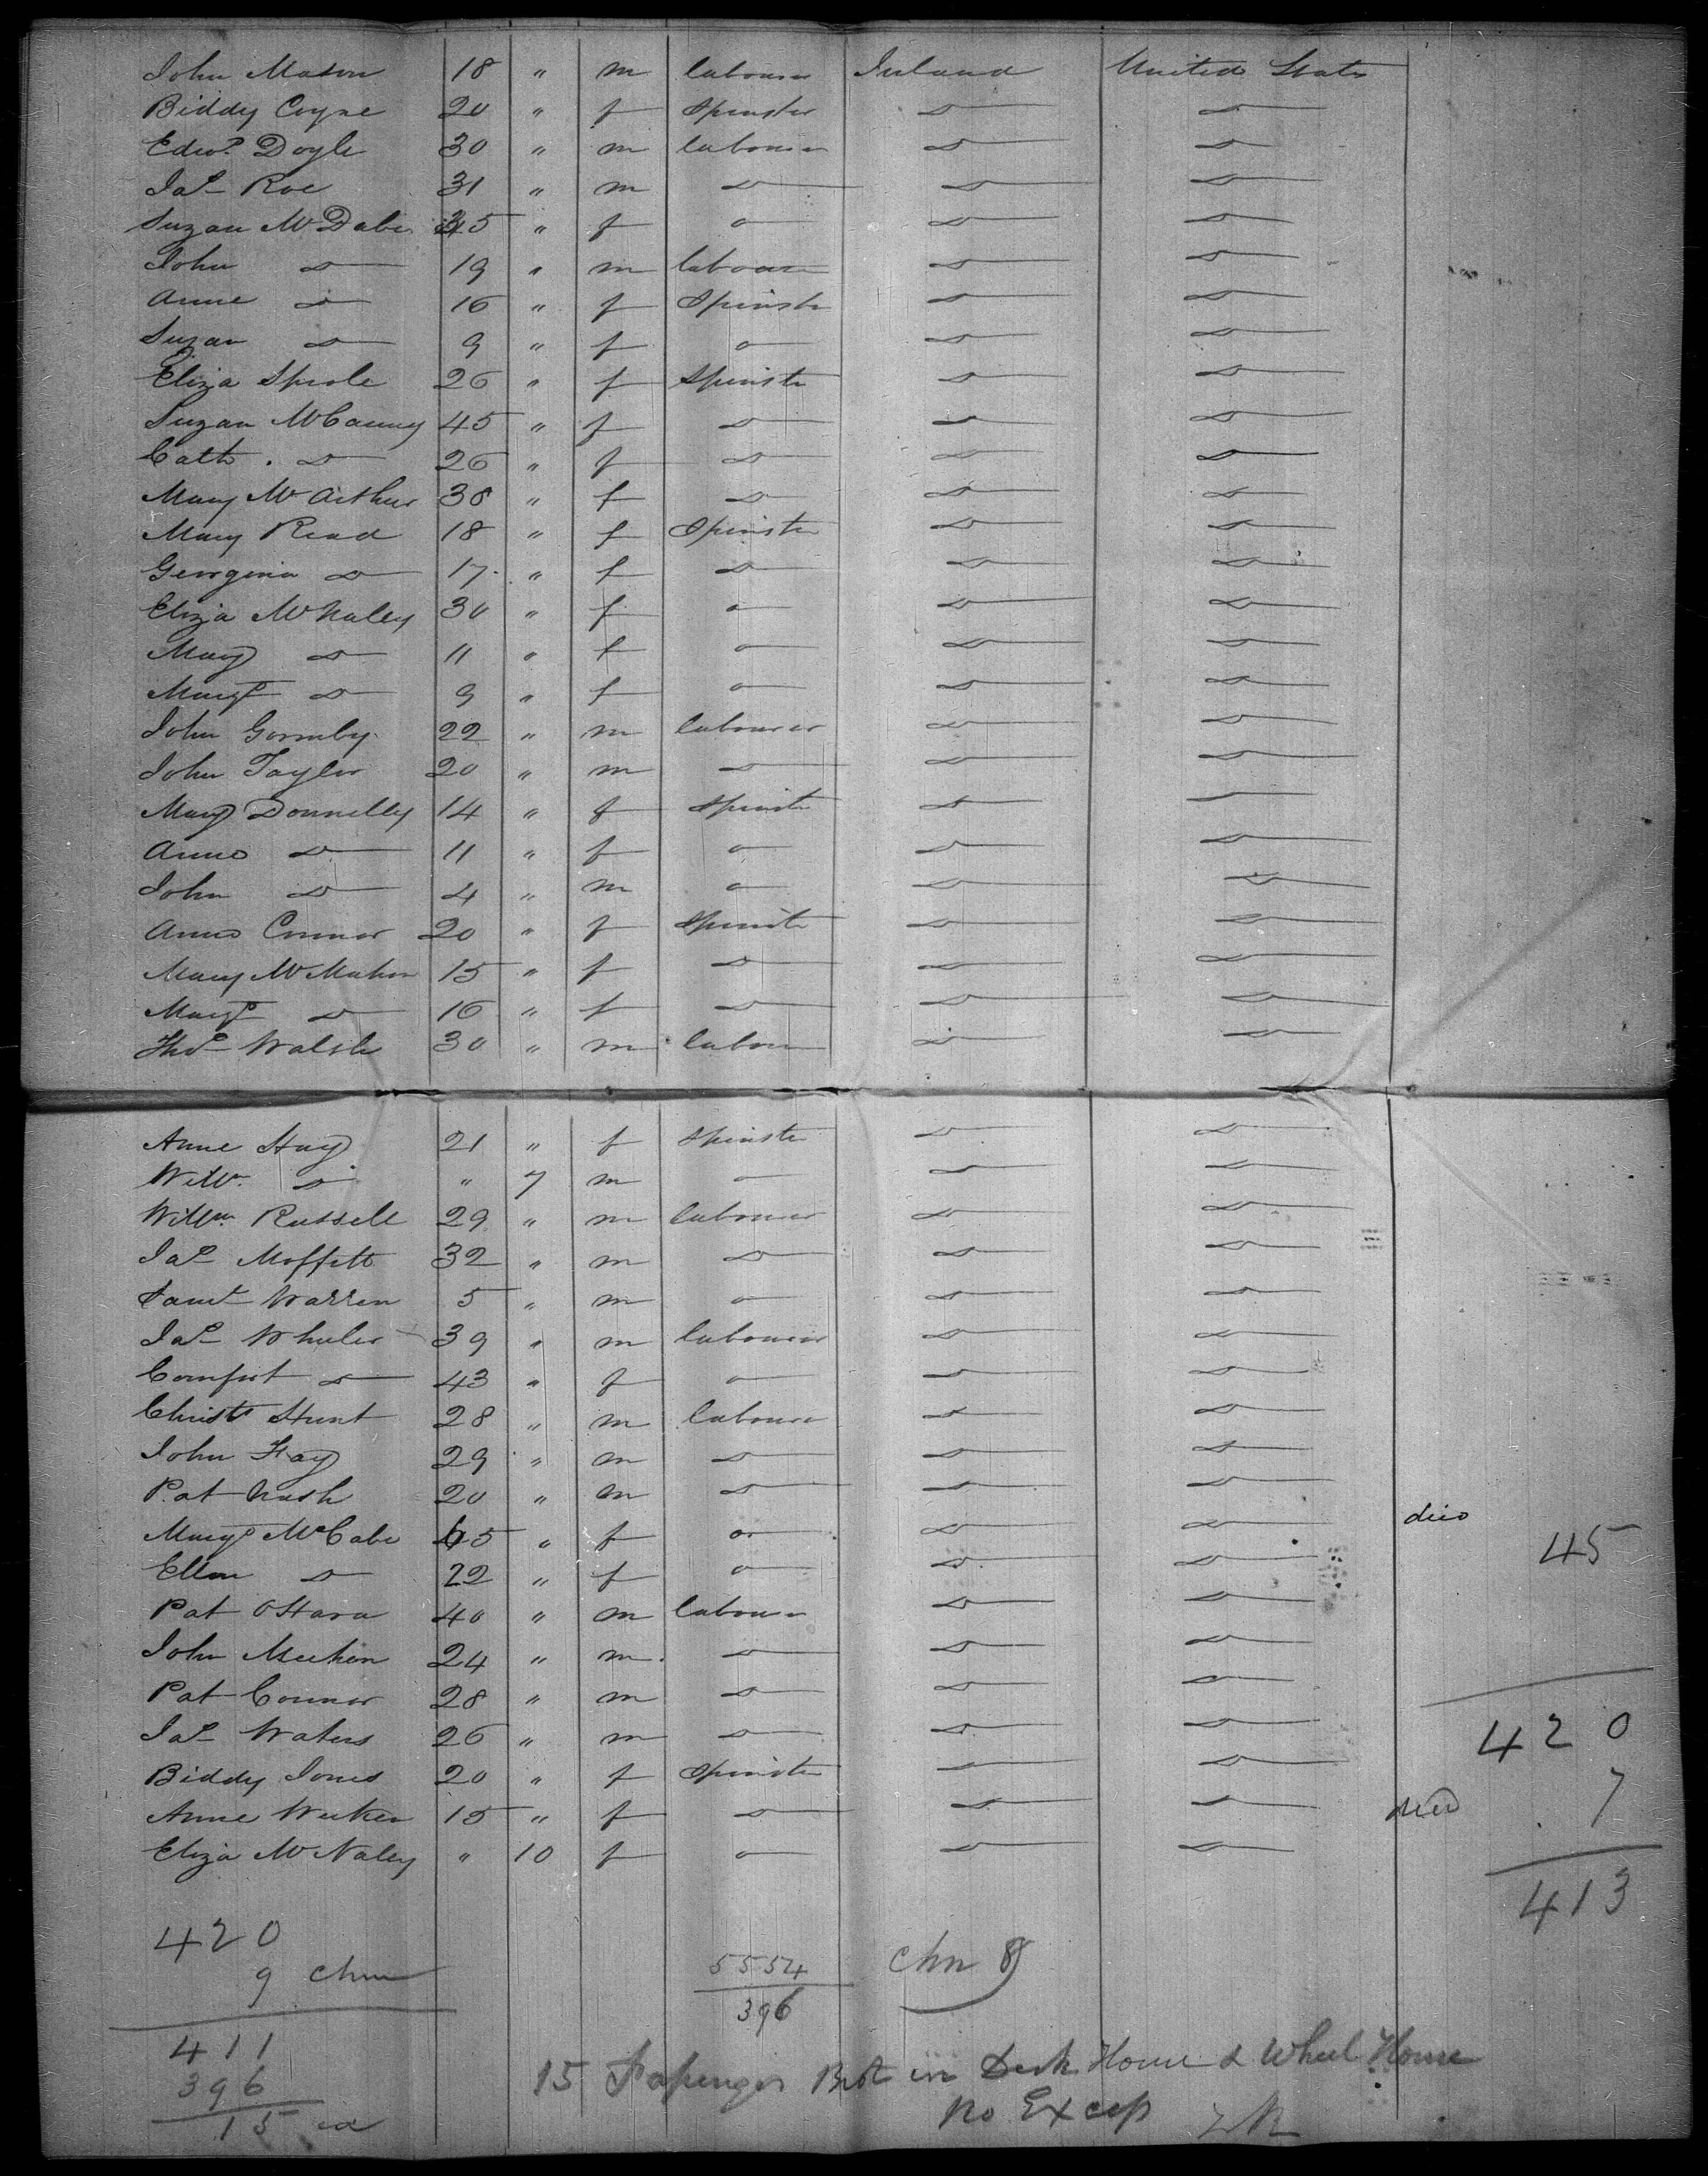 John Mason 18 " m labourer Ireland United States
Biddy Coyne 20 " f Spinster do do
Edwd Doyle 30 " m labourer do do
Jas Roe 31 " m do do do
Suzan McDabe 45 " f o do do
John do 19 " m labourer do do
Anne do 16 " f Spinster do do
Suzan do 9 " f o do do
Eliza Sprole 26 " f Spinster do do
Suzan McCanny 45 " f do do do
Cath. do 26 " f do do do
Mary McArthur 38 " f do do do
Mary Read 18 " f Spinster do do
Georgina do 17 " f do do do
Eliza McNaley 30 " f o do do
Mary do 11 " f o do do
Margt do 9 " f o do do
John Gormley 22 " m labourer do do
John Taylor 20 " m do do do
Mary Donnelly 14 " f Spinster do do
Anne do 11 " f o do do
John do 4 " m o do do
Anne Connor 20 " f Spinster do do
Mary McMahon 15 " f do do do
Margt do 16 " f do do do
Thos Walsh 30 " m labour do do
Anne Hay 21 " f Spinster do do
Willm do " 7 m o do do
Willm Russell 29 " m labourer do do
Jas Moffett 32 " m do do do
Saml Warren 5 " m o do do
Jas Wheeler 39 " m labourer do do
Comfort do 43 " f o do do
Christr Hunt 28 " m labourer do do
John Fay 29 " m do do do
Pat Nash 20 " m do do do
Margt McCabe 65 " f o do do died
45
Ellen do 22 " f o do do
Pat OHara 40 " m labourer do do
John Meehen 24 " m do do do
Pat Connor 28 " m do do do
Jas Waters 26 " m do do do
420
Biddy Jones 20 " f Spinster do do
Anne Meeken 15 " f do do do died
7
Eliza McNaley " 10 f o do do
413
420
9 chn
5554
396
chn 8
411
396
15 ex
15 Passengers Brot in Deck House & Wheel House
No Excess